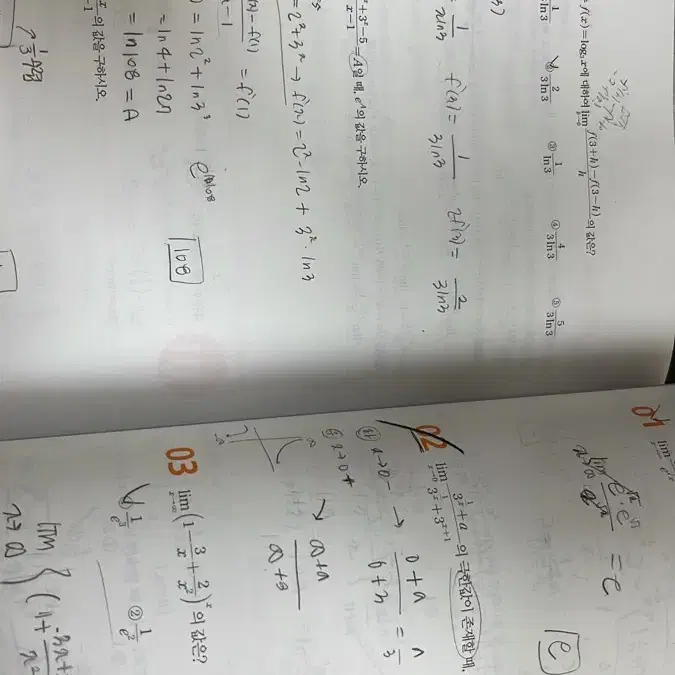 f(x) = log₃ x에 대하여 lim f(3+h)−f(3−h) / h 의 값은?
② 2/(3ln3)
③ 1/(ln3)
④ 4/(3ln3)
⑤ 5/(3ln3)
f'(3) = 1/(3ln3)
2f'(3) = 2/(3ln3)
−5 / x−1 = A일 때, e^A의 값을 구하시오.
= 2ˣ+3ˣ → f'(x) = 2ˣ·ln2 + 3ˣ·ln3
= f'(1)
= ln2² + ln3³
= ln4 + ln27
= ln108 = A
e^(ln108)
108
의 값을 구하시오.
01
lim
= e
e
02 lim x→0 (3^(1/x)+a) / (3^(1/x)+3^(1/x+1)) 의 극한값이 존재할 때,
x→0− → 0+a / 0+3 = a/3
x→0+
∞+a / ∞+3
03 lim x→∞ (1 − 3/x + 2/x²)ˣ의 값은?
① 1/e³
② 1/e²
lim x→∞ {(1+